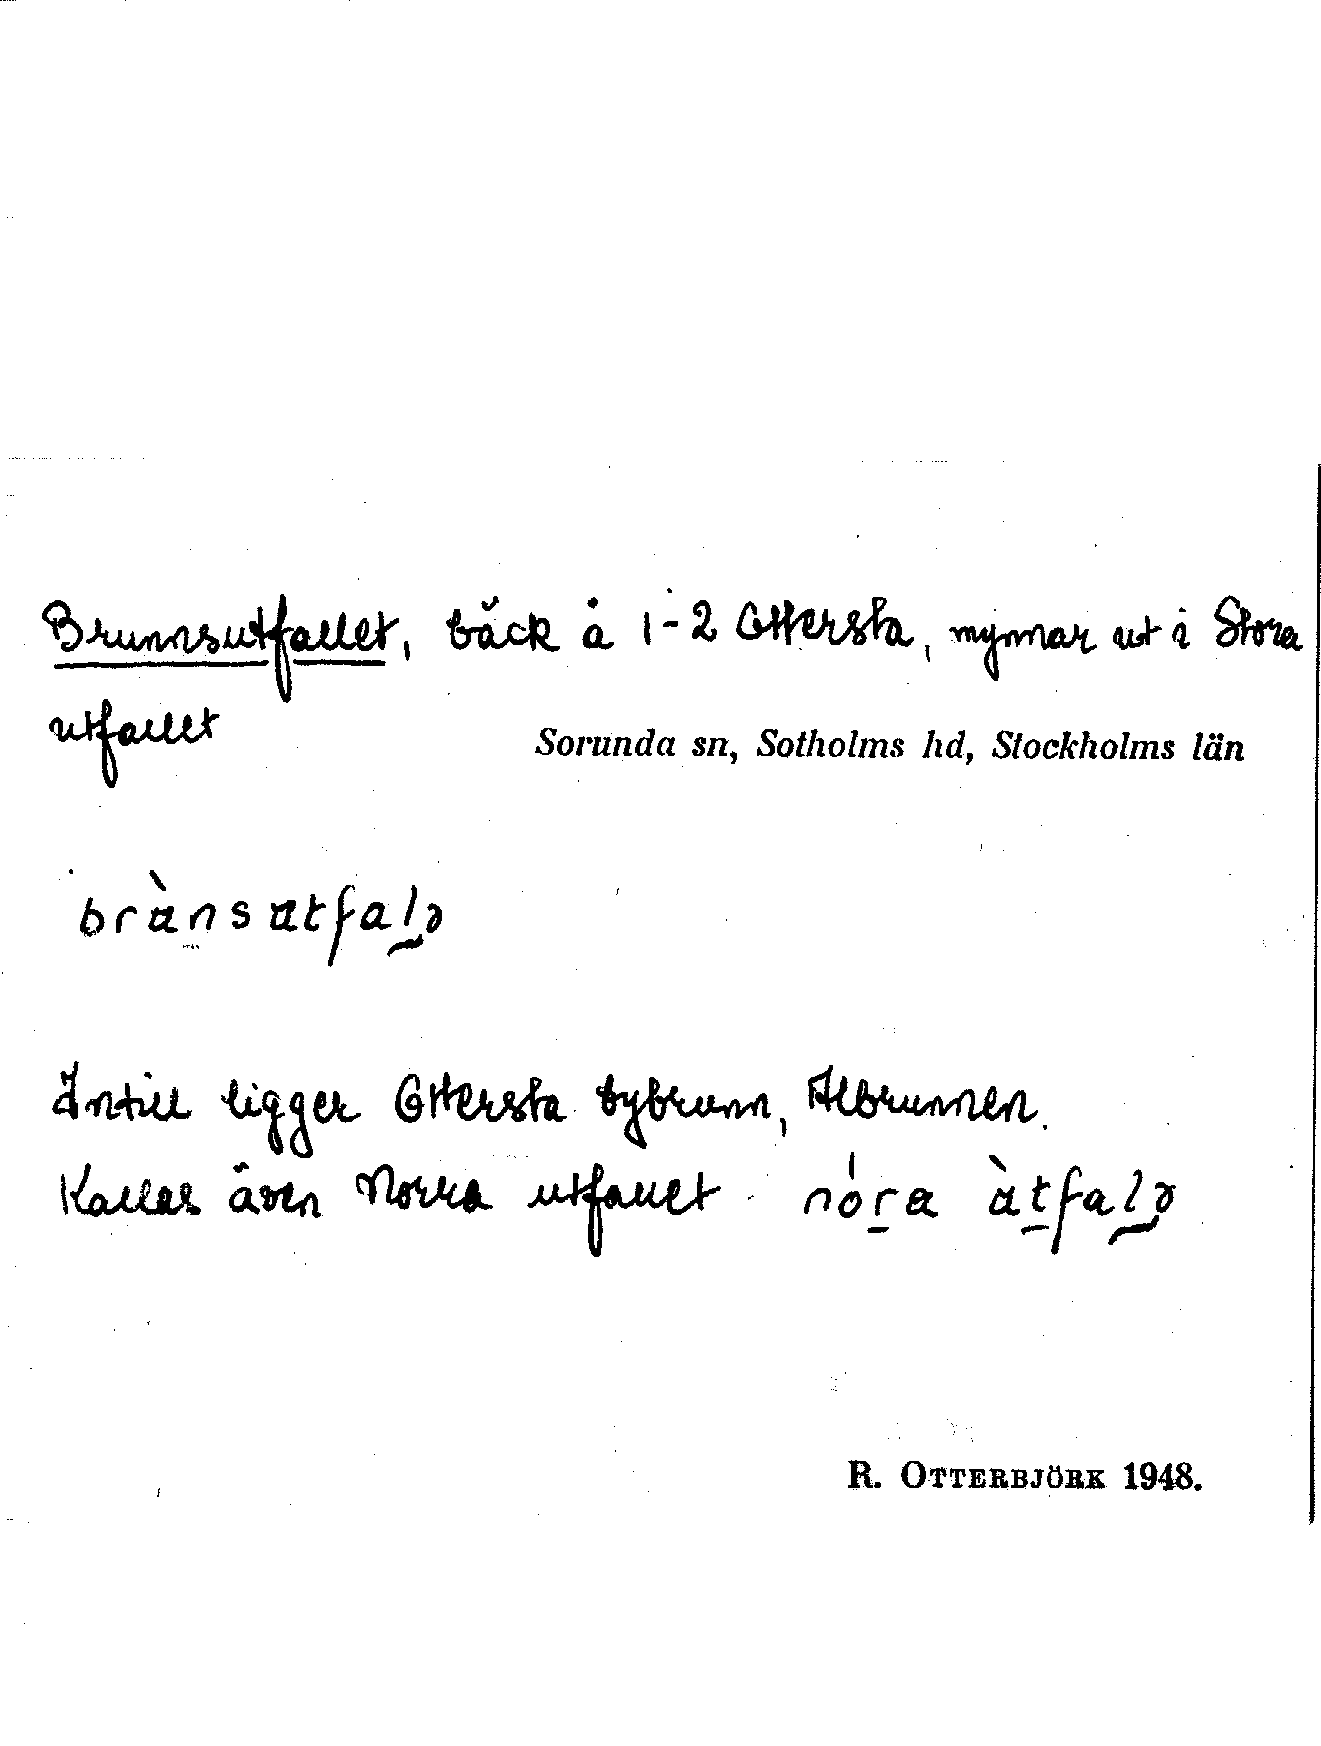 Brunnsutfallet, bäck å 1-2 Ottersta, mynnar ut i Stora
utfallet
Sorunda sn, Sotholms hd, Stockholms län
brànsatfalə
Intill ligger Ottersta bybrunn, Albrunnen.
Kallas även Norra utfallet nóra àtfalə
R. OTTERBJÖRK 1948.